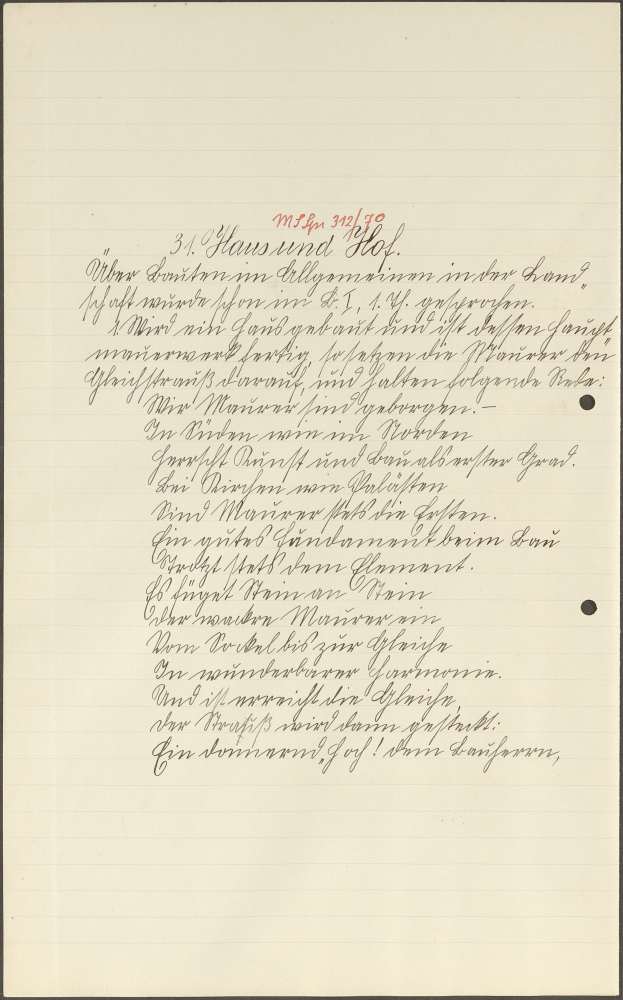 MSgn 312/70
31. Haus und Hof.
Über Bauten im Allgemeinen in der Land„
schaft wurde schon im B. I, 1. Th. gesprochen.
1. Wird ein Haus gebaut und ist dessen Haupt„
mauerwerk fertig, so setzen die Maurer den
Gleichstrauß darauf, und halten folgende Rede:
Wir Maurer sind geborgen. —
In Süden wie im Norden
Herrscht Kunst und Bau als erster Grad.
Bei Kirchen wie Palästen
Sind Maurer stets die Ersten.
Ein gutes Fundament beim Bau
Trotzt stets dem Element.
Es füget Stein an Stein
Der wackre Maurer ein
Vom Sockel bis zur Gleiche
In wunderbarer Harmonie.
Und ist erreicht die Gleiche,
Der Strauß wird dann gesteckt:
Ein donnernd „Hoch! dem Bauherrn,